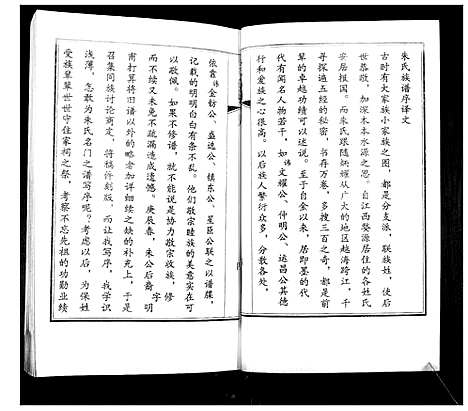 朱氏族谱序译文
古时有大家族小家族之图，都是分支派，联族姓，使后
世恭敬，加深木本水源之思。自江西婺源居住的各姓氏
安居报国。而朱氏跟随炳耀从广大的地区越海跨江，千
寻探遍五经的秘密，书存万卷，多搜三百之奇，都是前
辈的卓越功绩可以述说。至于自金以来，居即墨的代
代有闻名人物若干，如讳文耀公、仲明公、运昌公其德
行和爱族之心很高。以后族人繁衍众多，分散各处，
依靠讳金钫公、盛选公、镇东公、星臣公联之以谱牒，
记载的明明白白有条不乱。他们敬宗睦族的美意实在可
以敬佩。如果不修谱，就不能说是势力敬宗收族，修
而不续又未免不疏漏造成遗憾。庚辰春，朱公后裔字明
甫打算将旧谱以外的略者加详细续之缺的补充上，于是
召集同族讨论商定，将稿许刻版，而让我写序，我学识
浅薄，怎敢为朱氏名门之谱写序呢？考或以后，为保姓
受族辈辈世世守住家祠之祭，考察不忘先祖的功勋业绩